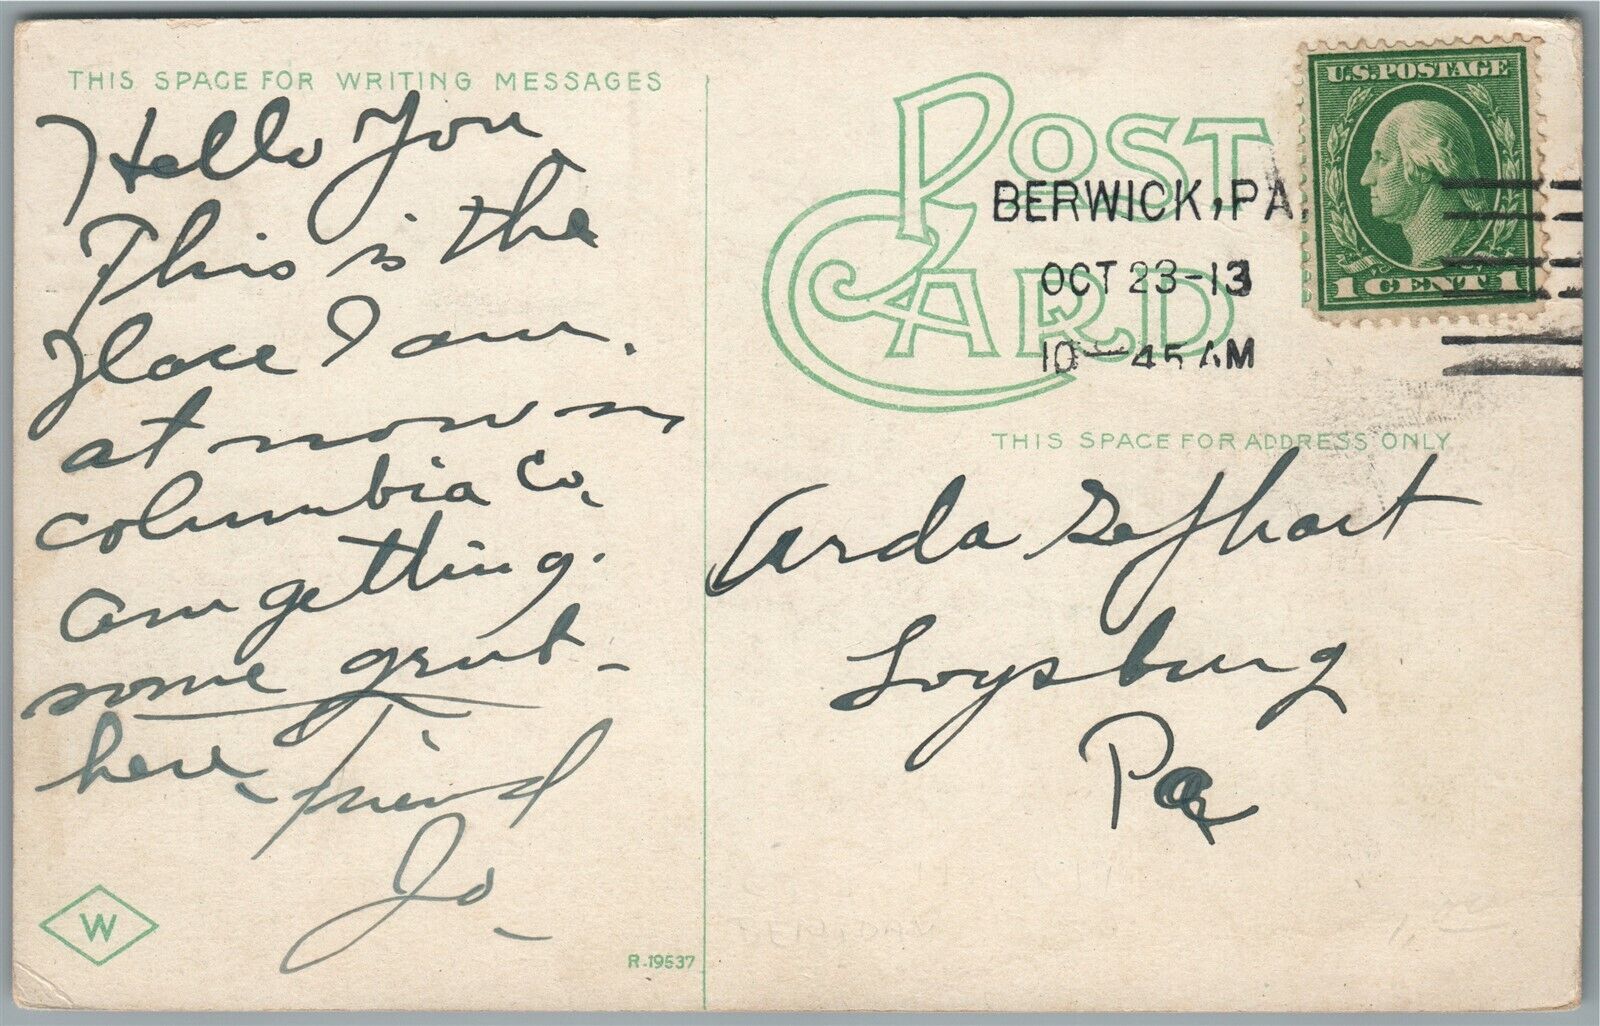 THIS SPACE FOR WRITING MESSAGES
Hello You
This is the
place I am
at now in
Columbia Co.
am getting.
some grub
here, friend
Jo
W
R-19537
POST
CARD
BERWICK, PA.
OCT 23-13
10-45 AM
U.S. POSTAGE
1 CENT 1
THIS SPACE FOR ADDRESS ONLY
Arda Gephart
Loysburg
Pa